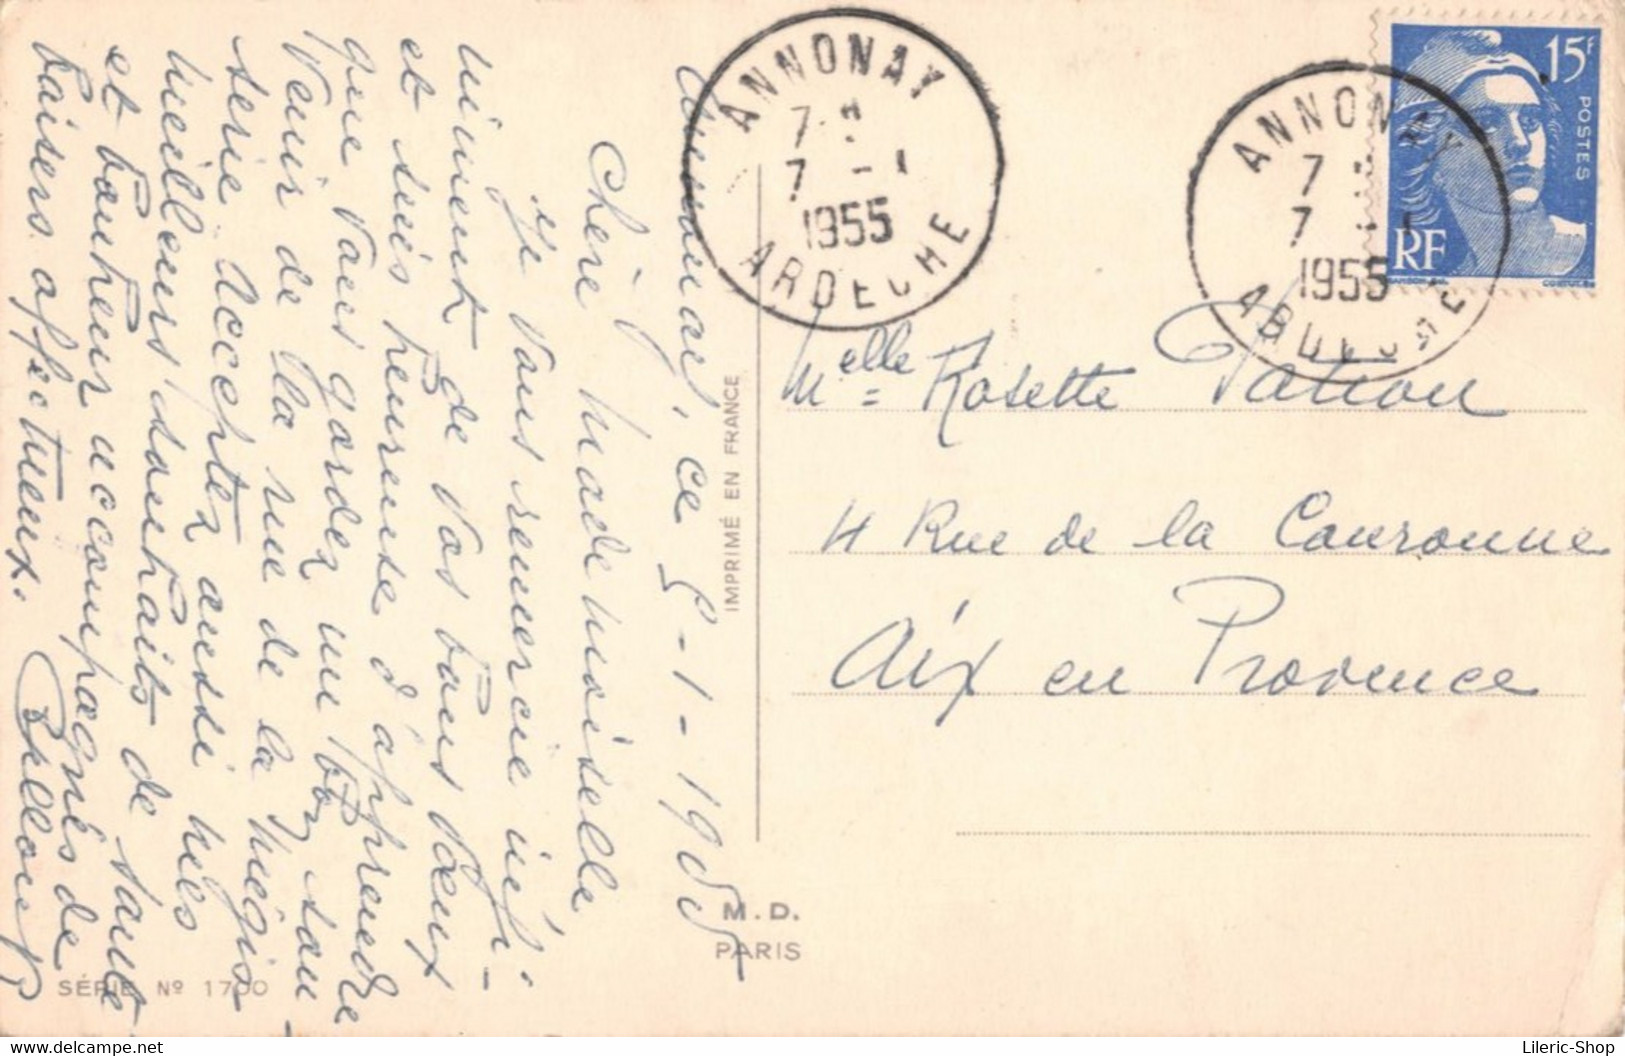 Annonay, ce 5-1-1955
Chère Mademoiselle
Je vous remercie infi-
niment de vos bons vœux
et suis heureuse d'apprendre
que vous gardez un bon sou-
venir de la rue de la
série Acceptez aussi mes
meilleurs souhaits de
et bonheur accompagnés de
baisers affectueux.
SÉRIE Nº 1700
IMPRIMÉ EN FRANCE
M.D.
PARIS
ANNONAY
7
7 - 1
1955
ARDECHE
ANNONAY
7
7 - 1
1955
ARDECHE
15F
POSTES
RF
Melle Rosette
4 Rue de la Couronne
Aix en Provence
Lileric-Shop